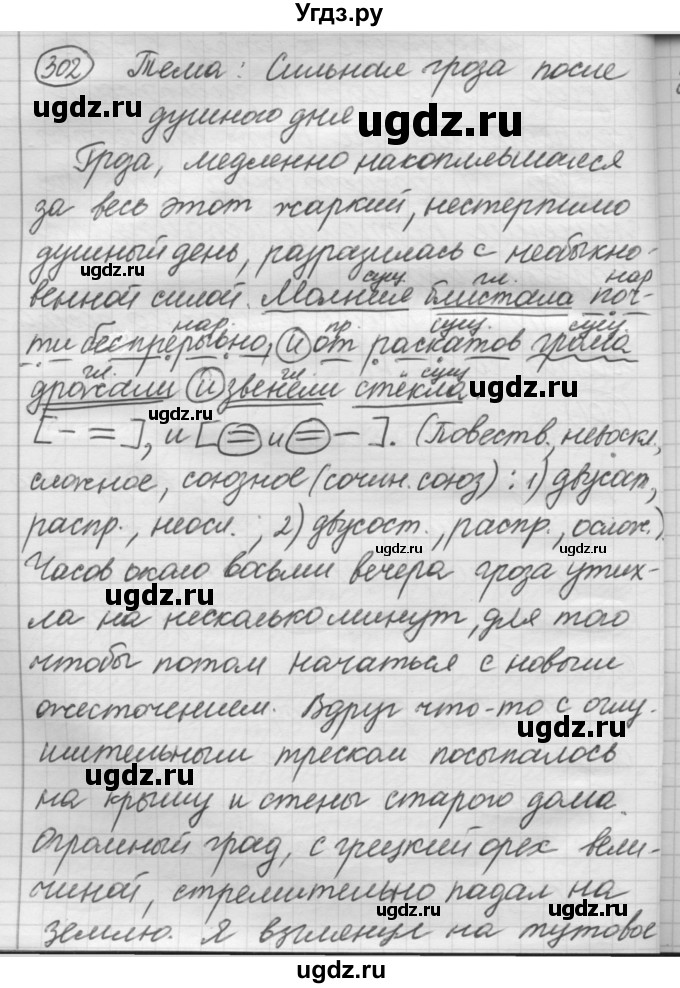 Угдз.ру
302 Тема: Сильная гроза после
ugdz.ru
душного дня
ugdz.ru
Гроза, медленно накоплявшаяся
за весь этот жаркий, нестерпимо
душный день, разразилась с необыкно-
ugdz.ru
сущ. гл. нар
венной силой. Молнии блистала поч-
нар. пр. сущ. сущ.
ти беспрерывно, и от раскатов грома
гл. гл. сущ
дрожали и звенели стёкла
ugdz.ru
[- =], и [= и = -]. (Повеств., невоскл.,
сложное, союзное (сочин. союз): 1) двусост.,
распр., неосл.; 2) двусост., распр., ослож.)
ugdz.ru
Часов около восьми вечера гроза утих-
ugdz.ru
ла на несколько минут, для того
чтобы потом начаться с новым
ожесточением. Вдруг что-то с оглу-
ugdz.ru
шительным треском посыпалось
ugdz.ru
на крышу и стены старого дома.
Огромный град, с грецкий орех вели-
чиной, стремительно падал на
ugdz.ru ugdz.ru
землю. Я взглянул на тутовое
ugdz.ru